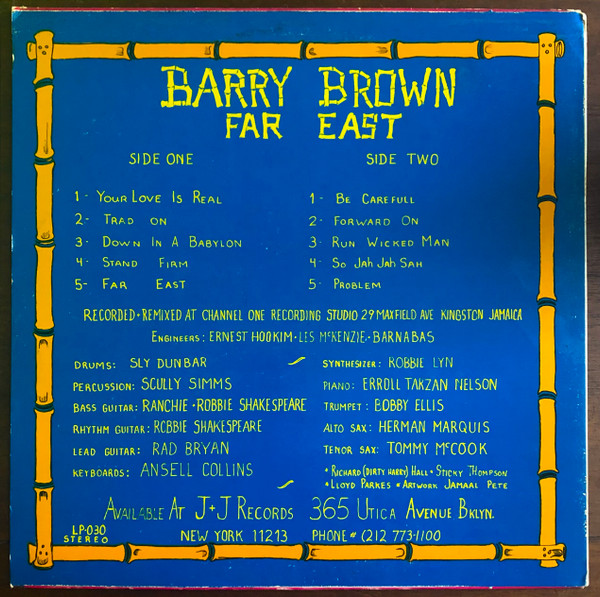 BARRY BROWN
FAR EAST
SIDE ONE
1- YOUR LOVE IS REAL
2- TRAD ON
3- DOWN IN A BABYLON
4- STAND FIRM
5- FAR EAST
SIDE TWO
1- BE CAREFULL
2- FORWARD ON
3- RUN WICKED MAN
4- SO JAH JAH SAH
5- PROBLEM
RECORDED·REMIXED AT CHANNEL ONE RECORDING STUDIO 29 MAXFIELD AVE KINGSTON JAMAICA
ENGINEERS: ERNEST HOOKIM·LES McKENZIE·BARNABAS
DRUMS: SLY DUNBAR
PERCUSSION: SCULLY SIMMS
BASS GUITAR: RANCHIE·ROBBIE SHAKESPEARE
RHYTHM GUITAR: ROBBIE SHAKESPEARE
LEAD GUITAR: RAD BRYAN
KEYBOARDS: ANSELL COLLINS
SYNTHESIZER: ROBBIE LYN
PIANO: ERROLL TAKZAN NELSON
TRUMPET: BOBBY ELLIS
ALTO SAX: HERMAN MARQUIS
TENOR SAX: TOMMY McCOOK
*RICHARD (DIRTY HARRY) HALL * STICKY THOMPSON
*LLOYD PARKES *ARTWORK JAMAAL PETE
AVAILABLE AT J+J RECORDS 365 UTICA AVENUE BKLYN.
NEW YORK 11213 PHONE# (212 773-1100
LP-030
STEREO